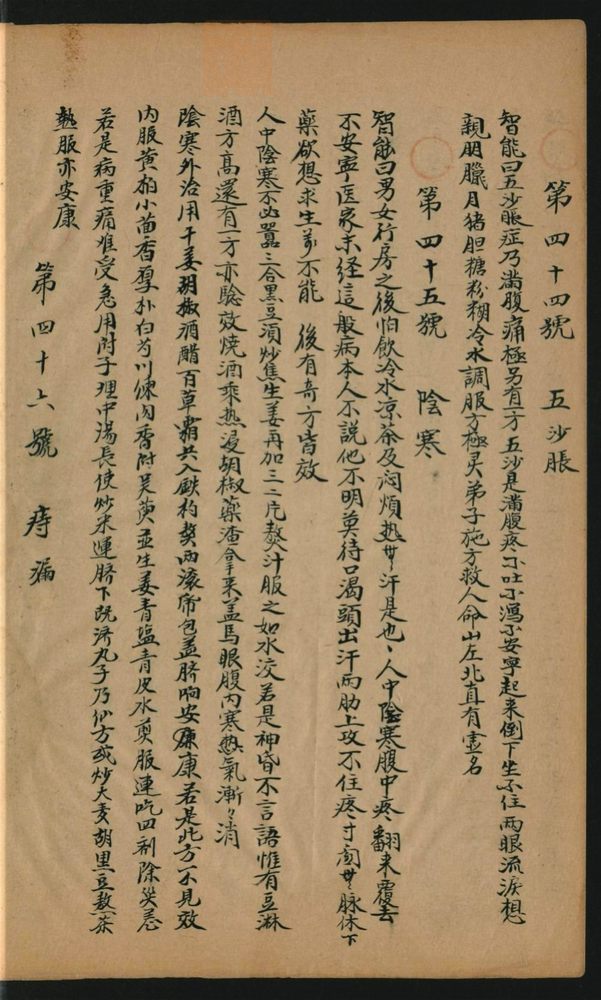 第四十四號 五沙脹
智能曰五沙脹症乃滿腹痛極另有一方五沙是滿腹疼不吐不瀉不安寧起來倒下坐不住兩眼流淚想
親朋臘月猪胆糖粉糊冷水調服方極灵弟子施方救人命山左北直有灵名
第四十五號 陰寒
智能曰男女行房之後怕飲冷水凉茶及闷煩熱世汗是也人中陰寒腹中疼翻來覆去
不安寧医家未経這般病本人不說他不明莫待口渴頭出汗两肋上攻不住疼寸関世脉休下
藥欲想求生萬不能 後有奇方皆效
人中陰寒不必嚣三合黑豆須炒焦生姜再加三二片熬汁服之如水洨若是神昏不言語惟有豆淋
酒方高還有一方亦騐效燒酒乘热浸胡椒藥渣拿來盖馬眼腹内寒熱氣漸々消
陰寒外治用干姜胡椒酒醋百草霜共入鉄杓熬两滚帋包盖臍响安康若是此方不見效
内服黄柏小茴香厚朴白芍川練肉香附吴萸並生姜青塩青皮水煎服連吃四剂除災恙
若是病重痛难受急用附子理中湯長使炒米運臍下既济丸子乃仙方或炒大麦胡黑豆熬茶
热服亦安康
第四十六號 痔漏